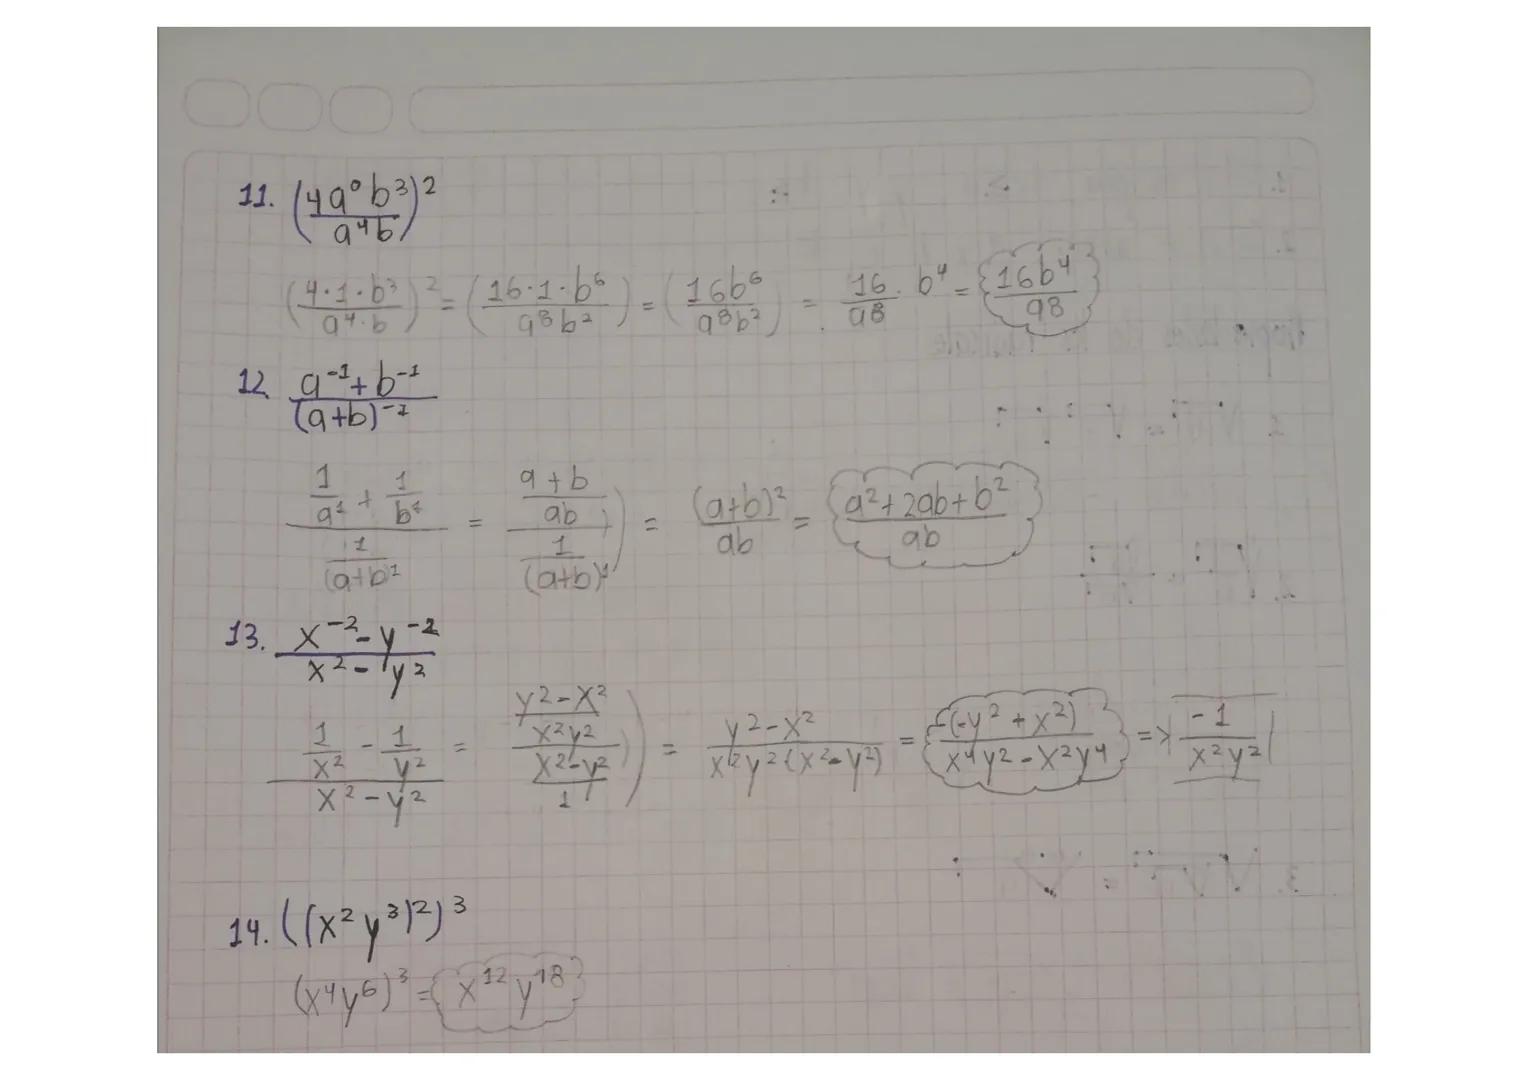 11. (4a⁰b³/a⁴b)²
(4·1·b³/a⁴·b)² = (16·1·b⁶/a⁸b²) = (16b⁶/a⁸b²) = 16/a8 · b⁴ = 16b⁴/a8
12 a⁻¹+b⁻¹/(a+b)⁻¹
1/a¹ + 1/b¹ / 1/(a+b)¹ = a+b/ab / 1/(a+b)¹ = (a+b)²/ab = a²+2ab+b²/ab
13. x⁻²-y⁻²/x²-y²
1/x² - 1/y² / x²-y² = y²-x²/x²y² / x²-y²/1 = y²-x²/x²y²(x²-y²) = -(-y²+x²)/x⁴y²-x²y⁴ => -1/x²y²
14. ((x²y³)²)³
(x⁴y⁶)³ = x¹²y¹⁸